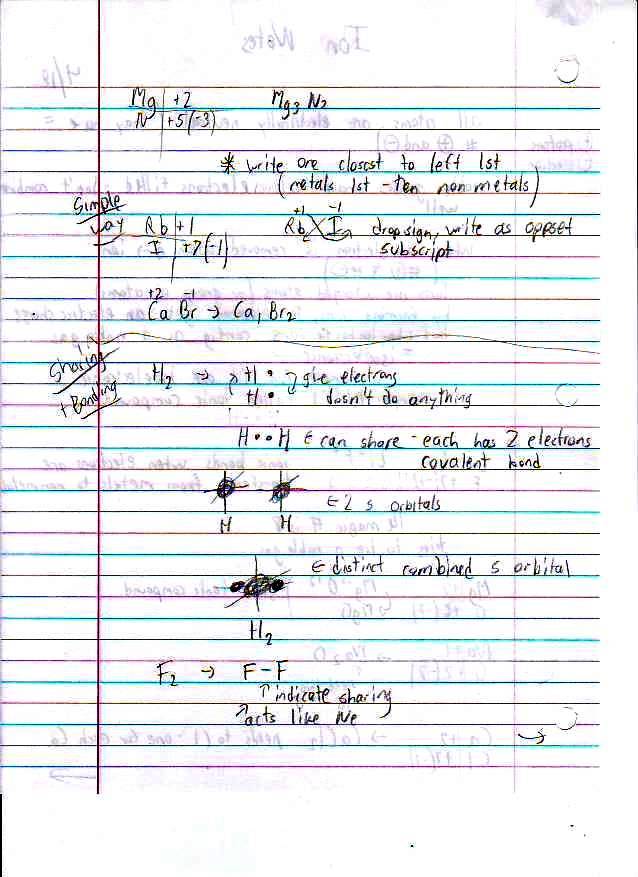 Mg | +2 Mg3 N2
N | +5(-3)
* write one closest to left 1st
(metals 1st - ten non metals)
Simple
way Rb | +1 +1 -1
I | +7(-1) Rb I drop sign, write as oppset
subscript
+2 -1
Ca Br → Ca1 Br2
Sharing
+ Bonding H2 → H• give electrons
H• doesn't do anything
H • • H ← can share - each has 2 electrons
covalent bond
← 2 s orbitals
H H
← distinct combined s orbital
H2
F2 → F - F
↑ indicate sharing
↗ acts like Ne
→